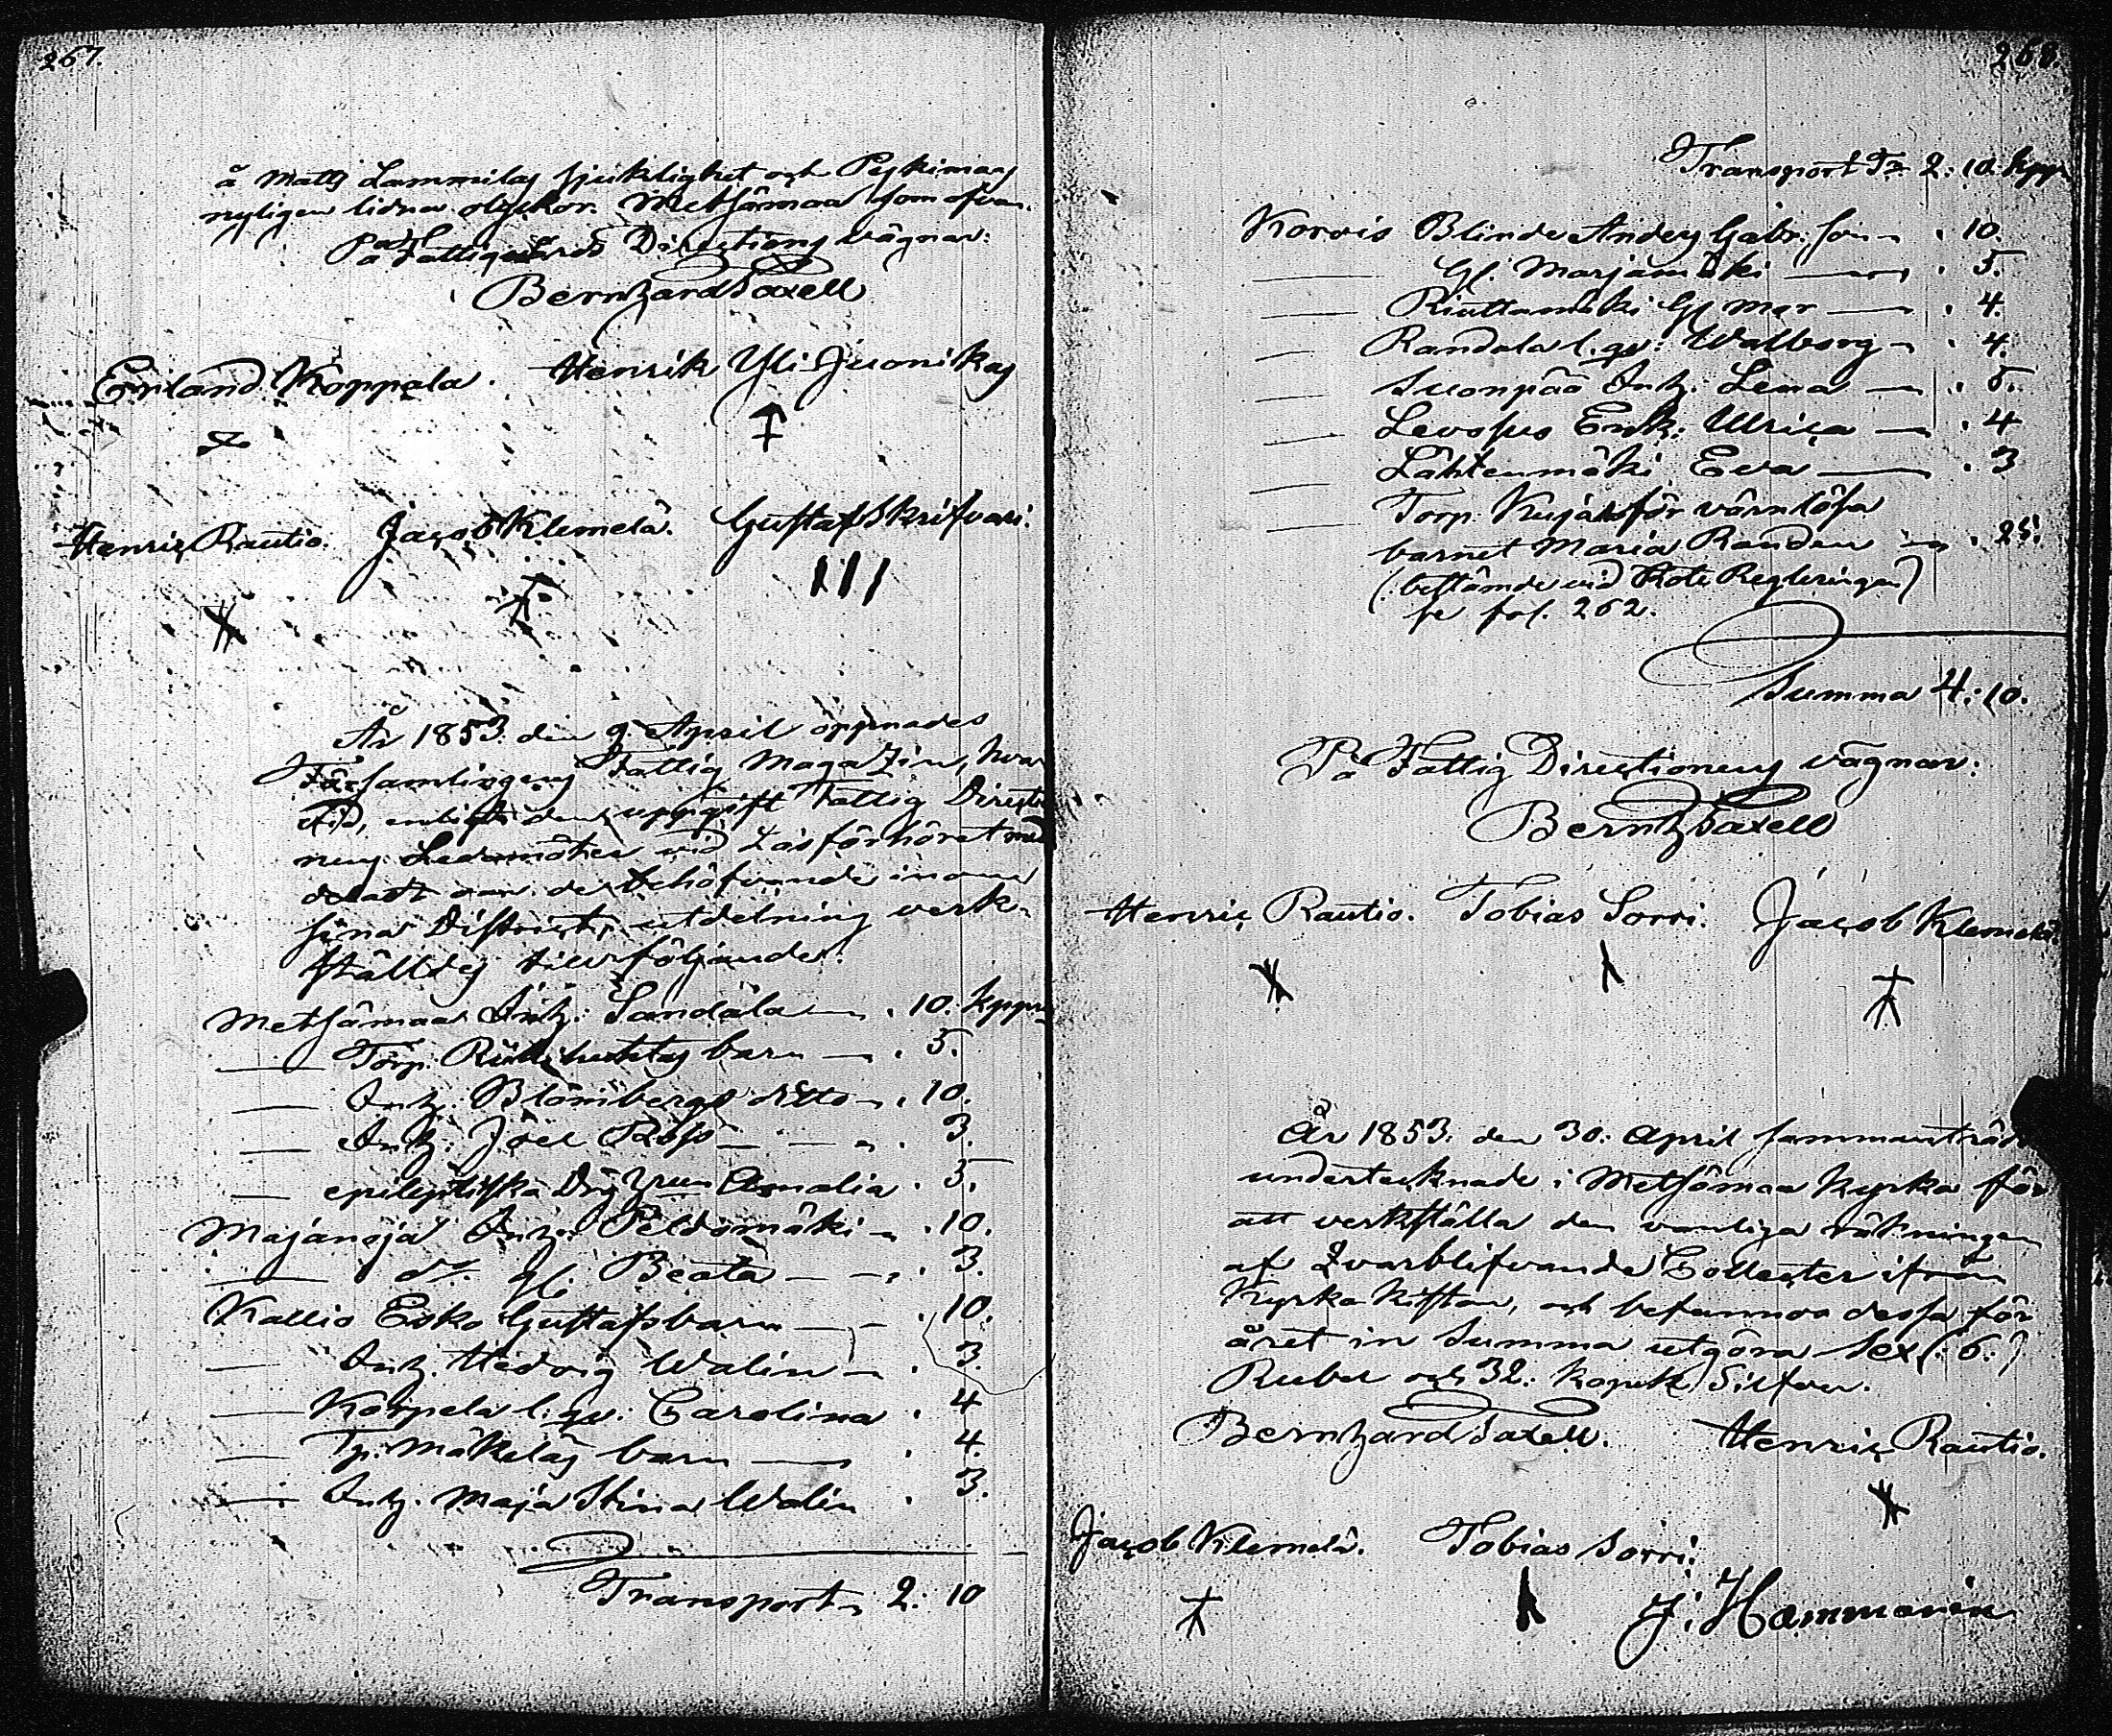 267.
å Matts Lammilas sjuklighet och Pejkimas
nyligen lidna olyckor. Metsämaa som ofvan.
På Fattigvårds Directions vägnar:
Bernhard Saxell
Erland Koppala. Henrik Yli Juonikas
Henric Rautio. Jacob Klemelä. Gustaf Skrifvari.
År 1853. den 9. April öppnades
Församlingens Fattig Magazin, hvar
vid, enligt den uppgift Fattig Directio
nens Ledamöter vid Läsförhöret med
deladt om de behöfvande inom
sina District, utdelning verk-
ställdes till följande:
Metsämaa Inh: Sandäla . 10. kppr
Torp. barn . 5.
Inh: Blombergs ditto . 10.
Inh: Joel . 3.
epileptiska Amalia . 5.
Majanoja Inh: Peldomäki . 10.
do gl. Beata . 3.
Kallio Esko Gustafs barn . 10.
Inh. Hedvig Walin . 3.
Korpela l: qv: Carolina . 4
Tp. Mäkeläs barn . 4.
Inh. Maja Stina Walin . 3.
Transport 2: 10
268.
Transport Tr 2: 10. kppr
Korvis Blinde Anders Gabr: son . 10.
Gl. Marjamäki . 5.
Riuttamäki Gl mor . 4.
Randala l. qv: Walborg . 4.
Suonpää Inh: Lena . 5.
Enk: Ulrica . 4
Lähtenmäki Eva . 3
Torp. Kujas för värnlösa
barnet Maria Randen . 25.
(: bestämde vid Rote Regleringen)
se fol. 262.
Summa 4: 10.
På Fattig Directionens vägnar:
Bernh Saxell
Henric Rautio. Tobias Sorri. Jacob Klemelä.
År 1853. den 30. April sammanträdde
undertecknade i Metsämaa Kyrka för
att verkställa den vanliga räkningen
af qvarblifvande Collecter ifrån
Kyrka Kistan, och befunnos dessa för
året in Summa utgöra Sex (: 6 :)
Rubel och 32. Kopek Silfver.
Bernhard Saxell. Henric Rautio.
Jacob Klemelä. Tobias Sorri.
J. Hammarén